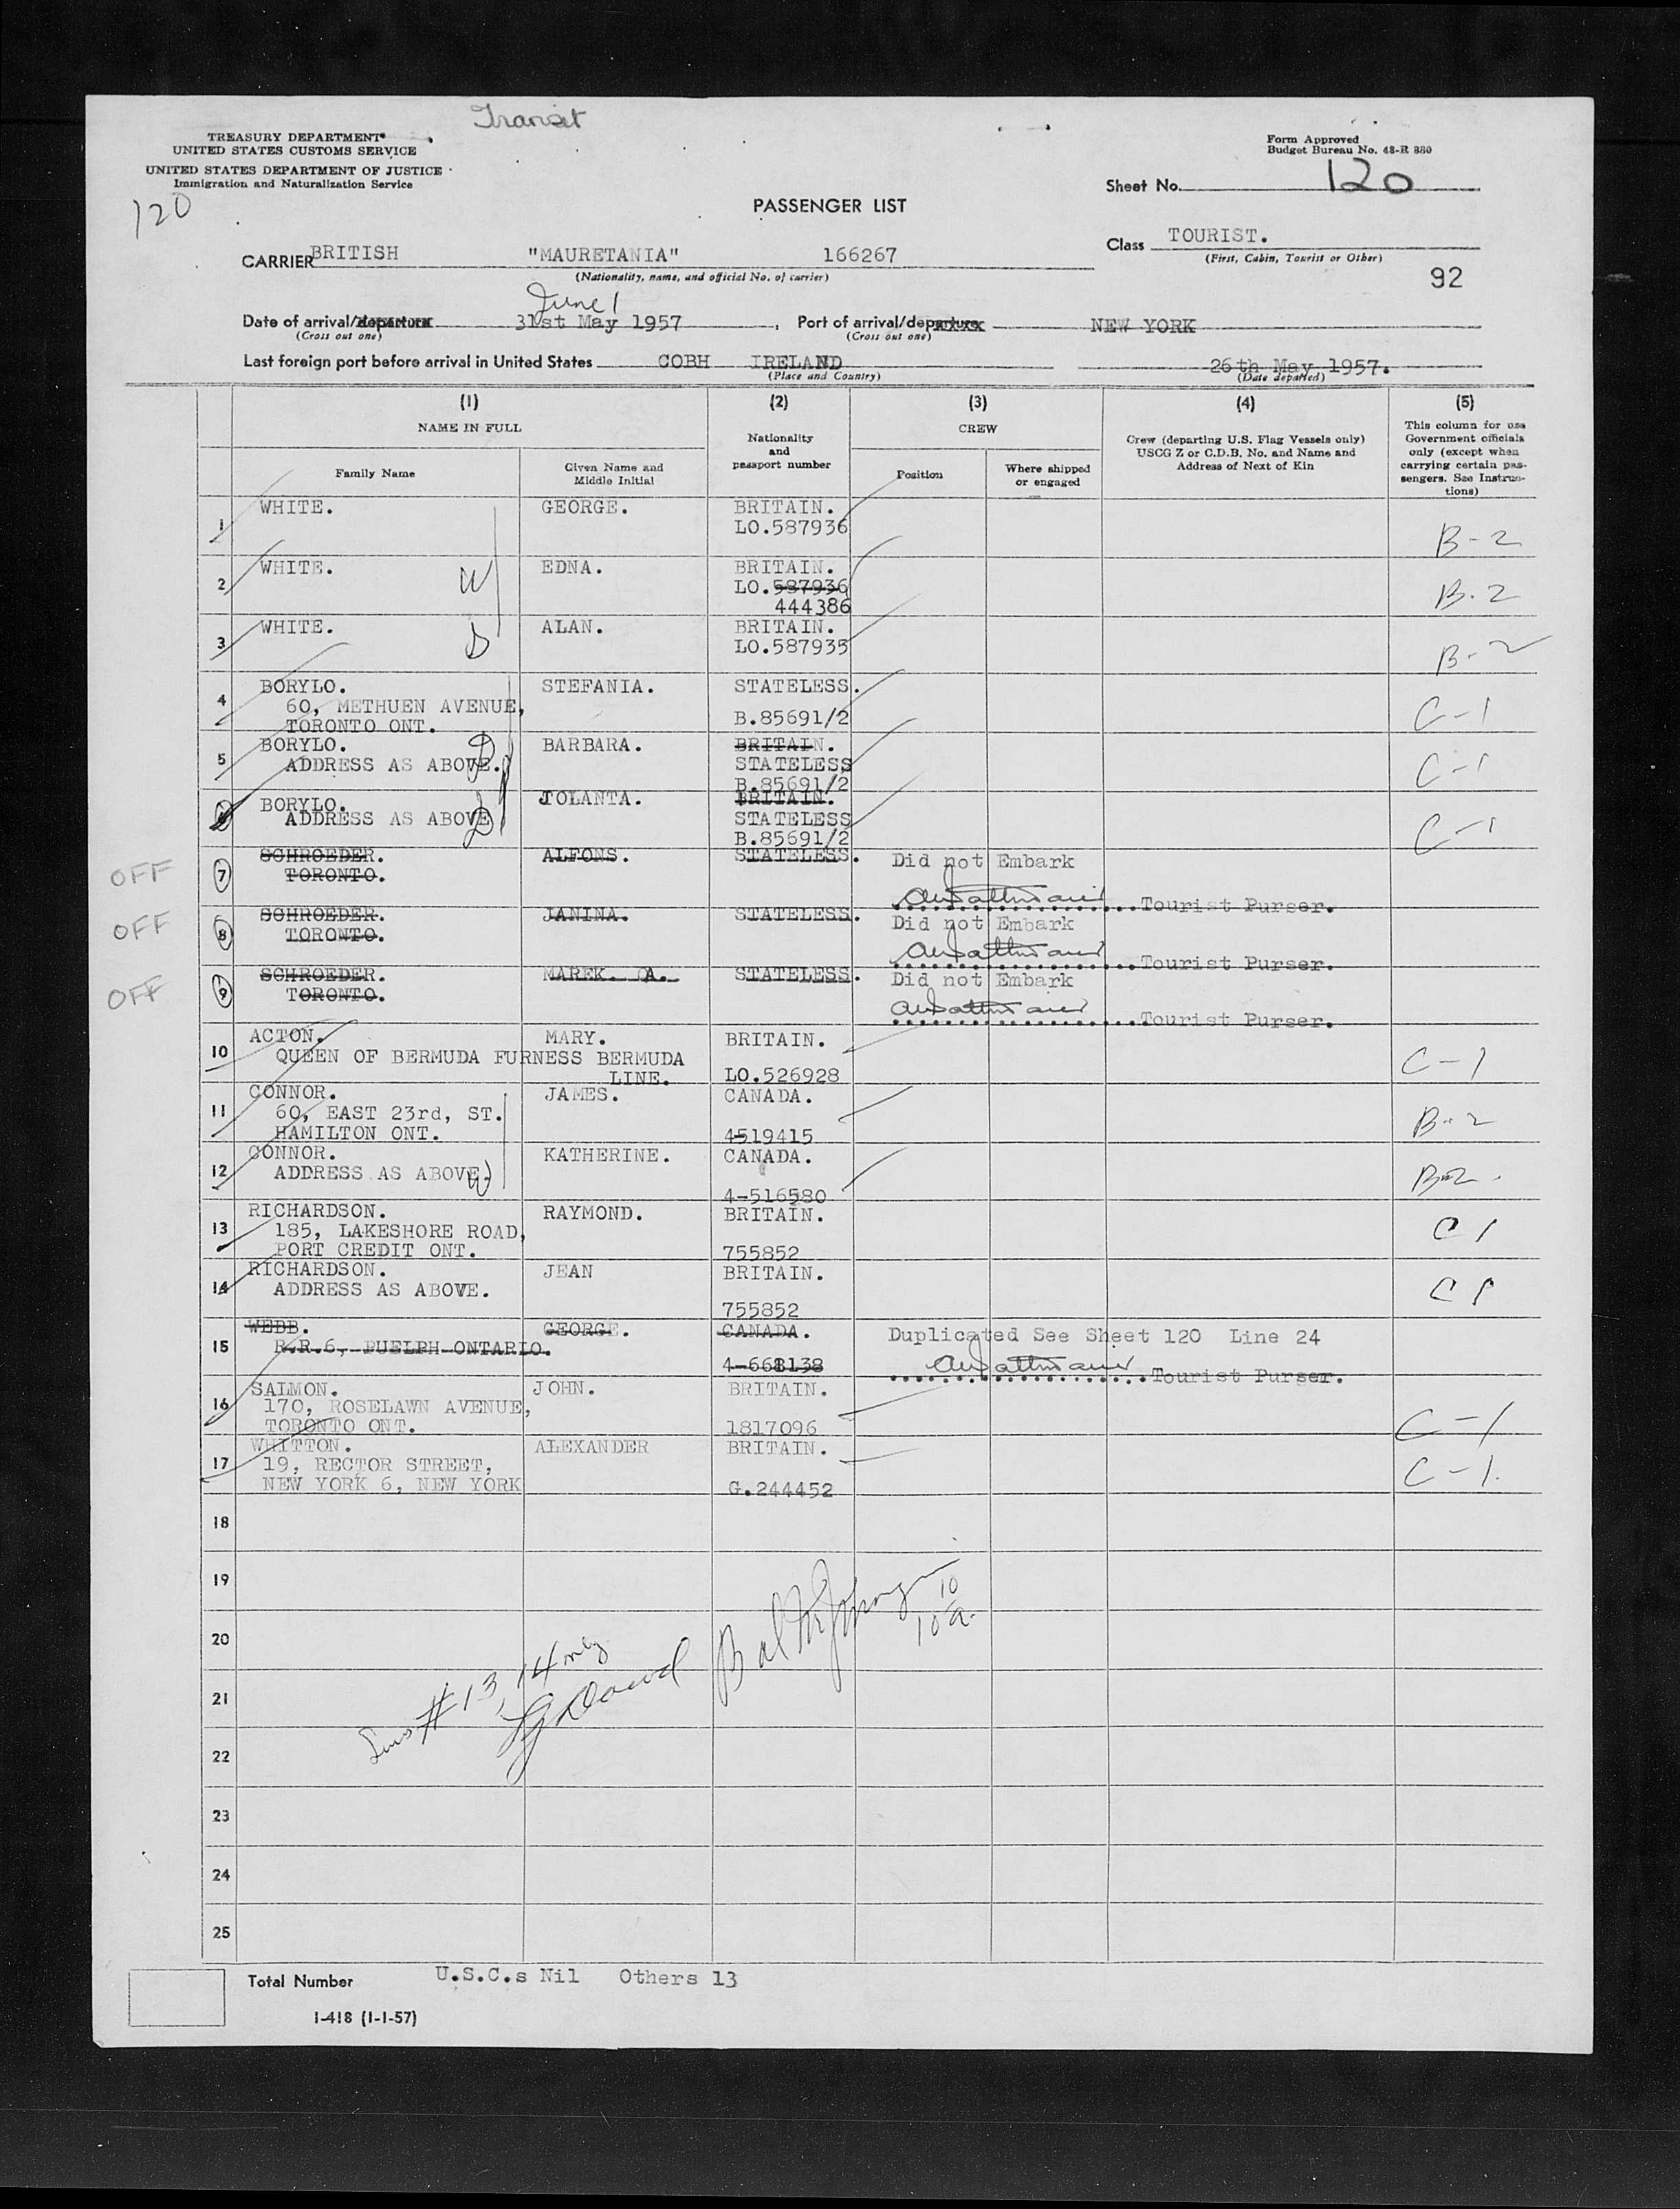 Transit
TREASURY DEPARTMENT
UNITED STATES CUSTOMS SERVICE
UNITED STATES DEPARTMENT OF JUSTICE
Immigration and Naturalization Service
120
Form Approved
Budget Bureau No. 43-R 880
Sheet No. 120
PASSENGER LIST
Class TOURIST.
(First, Cabin, Tourist or Other)
92
CARRIER BRITISH "MAURETANIA" 166267
(Nationality, name, and official No. of carrier)
June 1
Date of arrival/departure 31st May 1957, Port of arrival/departure NEW YORK
(Cross out one) (Cross out one)
Last foreign port before arrival in United States COBH IRELAND 26th May 1957.
(Place and Country) (Date departed)
(1) (2) (3) (4) (5)
NAME IN FULL
Family Name
Given Name and Middle Initial
Nationality and passport number
CREW
Position
Where shipped or engaged
Crew (departing U.S. Flag Vessels only) USCG Z or C.D.B. No. and Name and Address of Next of Kin
This column for use Government officials only (except when carrying certain passengers. See Instructions)
1 WHITE. GEORGE. BRITAIN.
LO.587936 B-2
2 WHITE. W EDNA. BRITAIN.
LO.587936 B.2
444386
3 WHITE. S ALAN. BRITAIN.
LO.587935 B-2
4 BORYLO. STEFANIA. STATELESS.
60, METHUEN AVENUE, B.85691/2 C-1
TORONTO ONT.
5 BORYLO. D BARBARA. BRITAIN.
ADDRESS AS ABOVE. STATELESS C-1
B.85691/2
6 BORYLO. D JOLANTA. BRITAIN.
ADDRESS AS ABOVE STATELESS
B.85691/2 C-1
OFF 7 SCHROEDER. ALFONS. STATELESS. Did not Embark
TORONTO.
Tourist Purser.
OFF 8 SCHROEDER. JANINA. STATELESS. Did not Embark
TORONTO.
Tourist Purser.
OFF 9 SCHROEDER. MAREK. A. STATELESS. Did not Embark
TORONTO.
Tourist Purser.
10 ACTON. MARY. BRITAIN.
QUEEN OF BERMUDA FURNESS BERMUDA C-1
LINE. LO.526928
11 CONNOR. JAMES. CANADA.
60, EAST 23rd, ST. B-2
HAMILTON ONT. 4-519415
12 CONNOR. KATHERINE. CANADA.
ADDRESS AS ABOVE. W B-2
4-516580
13 RICHARDSON. RAYMOND. BRITAIN.
185, LAKESHORE ROAD, C 1
PORT CREDIT ONT. 755852
14 RICHARDSON. JEAN BRITAIN.
ADDRESS AS ABOVE. C 1
755852
15 WEBB. GEORGE. CANADA. Duplicated See Sheet 120 Line 24
R.R.6, PUELPH ONTARIO.
4-668138 Tourist Purser.
16 SALMON. JOHN. BRITAIN.
170, ROSELAWN AVENUE, C-1
TORONTO ONT. 1817096
17 WHITTON. ALEXANDER BRITAIN.
19, RECTOR STREET, C-1.
NEW YORK 6, NEW YORK G.244452
18
19
20
21
22
23
24
25
#13, 14 only
10
10
Total Number U.S.C.s Nil Others 13
I-418 (1-1-57)